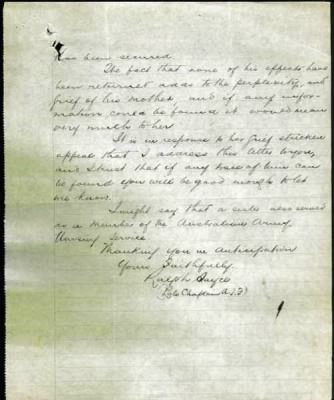 has been secured.
The fact that none of his effects have
been returned adds to the perplexity, and
grief of his mother, and if any infor-
mation could be found it would mean
very much to her.
It is in response to her grief stricken
appeal that I address this letter to you,
and trust that if any trace of him can
be found you will be good enough to let
me know.
I might say that a sister also served
as a member of the Australian Army
Nursing Service
Thanking you in anticipation
Yours faithfully.
Ralph
(late Chaplain A.I.F)